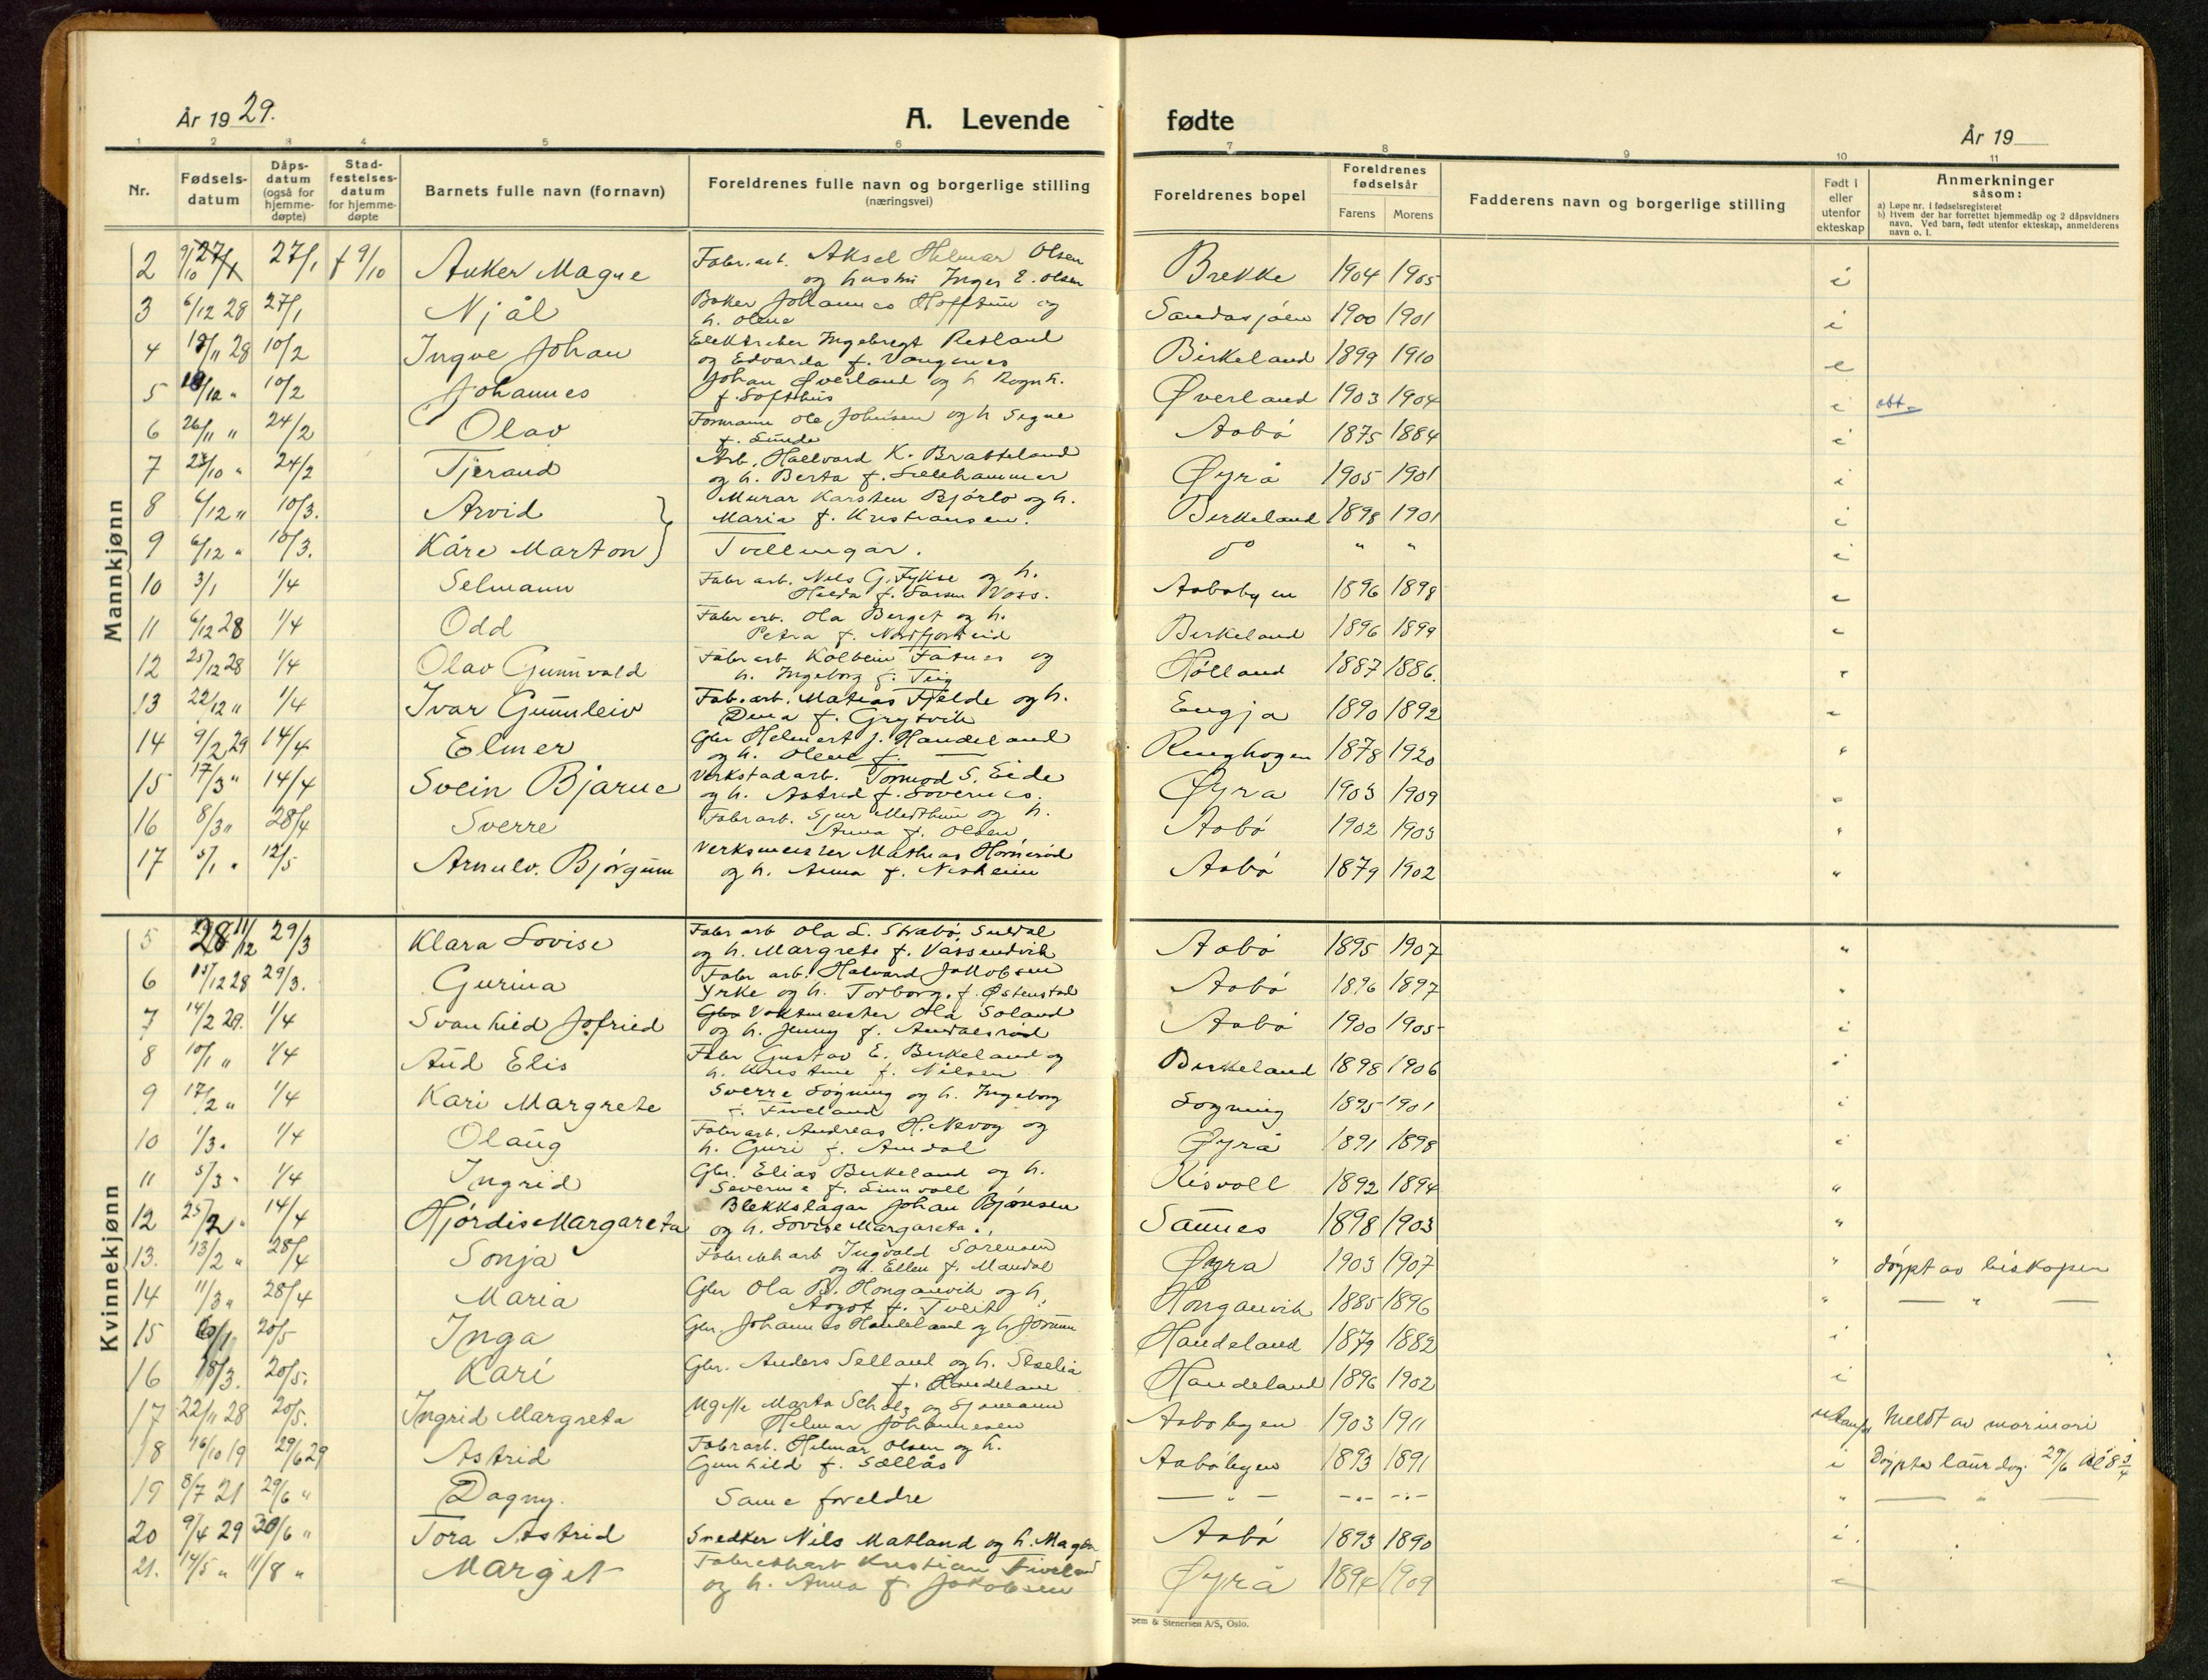 År 1929.
A. Levende fødte
År 19
1 2 3 4 5 6 7 8 9 10 11
Nr. Fødsels-datum Dåps-datum (også for hjemme-døpte) Stad-festelses-datum for hjemme-døpte Barnets fulle navn (fornavn) Foreldrenes fulle navn og borgerlige stilling (næringsvei) Foreldrenes bopel Foreldrenes fødselsår Farens Morens Fadderens navn og borgerlige stilling Født i eller utenfor ekteskap Anmerkninger såsom:
a) Løpe nr. i fødselsregisteret
b) Hvem der har forrettet hjemmedåp og 2 dåpsvidners navn. Ved barn, født utenfor ekteskap, anmelderens navn o. l.
Mannkjønn
2 9/10 27/1 † 9/10 Anker Magne Fabr. arb. Aksel Helmar Olsen Brekke 1904 1905 i
og hustru Inger E. Olsen
3 6/12 28 27/1 Njål Baker Johannes Hofftun og Sandasjøen 1900 1901 i
h. Olena
4 18/11 28 10/2 Ingve Johan Elektriker Ingebregt Restland Birkeland 1899 1910 e
og Edvarda f. Vangenes
5 10/2 Johannes Johan Øverland og h Ragnh. Øverland 1903 1904 i att.
f. Softhus
6 26/11 " 24/2 Olav Formann Ole Johnsen og h Signe Aabø 1875 1884 i
f. Sunde
7 23/10 " 24/2 Tjerand Arb. Hallvard K. Bratteland Øyrå 1905 1901 i
og h. Berta f. Lillehammer
8 6/12 " 10/3. Arvid Murar Karsten Bjørlo og h. Birkeland 1898 1901 i
Maria f. Kristiansen.
9 6/12 " 10/3. Kåre Marton Tvillingar. do " " i
10 3/1 1/4 Selmann Fabr arb. Nils G. Fykse og h. Aabøbyen 1896 1898 e
Hilda f. Larsen Voss.
11 6/12 28 1/4 Odd Fabr arb. Ola Berget og h. Birkeland 1896 1899
Petra f. Nordfjordeid
12 25/12 28 1/4 Olav Gunnvald Fabr arb Kolbein Fatnes og Hølland 1887 1886. "
h. Ingeborg f. Teig
13 22/12 " 1/4 Ivar Gunnleiv Fabr arb. Matias Fjelde og h. Engja 1890 1892 "
Dina f. Grytvik
14 9/2 29 14/4 Elmer Gbr Helmert J. Handeland Ringhogen 1878 1920 "
og h. Olene f. ——
15 17/3 " 14/4 Svein Bjarne Verkstadarb. Tormod S. Eide Øyra 1903 1909 "
og h. Astrid f. Lovernes.
16 8/3 " 28/4 Sverre Fabr arb. Sjur Midthun og h. Aabø 1902 1903 "
Anna f. Olsen
17 5/1 " 12/5 Arnulv. Bjørgum Verksmeister Mathias Hornerød Aabø 1879 1902 "
og h. Anna f. Nesheim
Kvinnekjønn
5 29/3 Klara Lovise Fabr arb Ola L. Strabø Suldal Aabø 1895 1907 "
og h. Margrete f. Vassendvik
6 15/12 28 29/3. Gurina Fabr arb. Halvard Jakobsen Aabø 1896 1897 "
Yrke og h. Torborg. f. Østenstad
7 14/2 29. 1/4 Svanhild Jofried Gbr Vaktmeister Ola Soland Aabø 1900 1905 i
og h. Jenny f. Aurdalsrød
8 10/1 " 1/4 Aud Elis Fabr Gustav E. Birkeland og Birkeland 1898 1906 i
h. Kristine f. Nilsen
9 17/2 " 1/4 Kari Margrete Sverre Løgning og h. Ingeborg Løgning 1895 1901 i
f. Fiveland
10 1/3 " 1/4 Olaug Fabr arb. Andreas H. Nevøy og Øyrå 1891 1898 i
h. Guri f. Amdal
11 5/3 " 1/4 Ingrid Gbr. Elias Birkeland og h. Risvoll 1892 1894 "
Severine f. Linnvoll
12 25/2 " 14/4 Hjørdis Margareta Blekkslagar Johan Bjønsen Saunes 1898 1903 "
og h. Lovise Margareta.
13. 13/2 " 28/4 Sonja Fabrikkarb Ingvald Sørensen Øyra 1903 1907 " døypt av biskopen
og h. Ellen f. Mandal
14 11/3 " 28/4 Maria Gbr Ola B. Honganvik og h. Honganvik 1885 1896 " — " —
Aagot f. Tveit
15 20/5 Inga Gbr Johannes Handeland og h Jorunn Handeland 1879 1882 i
16 18/3. 20/5. Kari Gbr. Anders Selland og h. Handeland 1896 1902 i
f. Handeland
17 22/11 28 20/5. Ingrid Margreta Ugifte Marta Scholz og Sjømann Aabøbyen 1903 1911 utanf. Meldt av mormori
Helmar Johannesen
18 16/10 19 29/6 29 Astrid Fabr arb. Helmar Olsen og h. Aabøbyen 1893 1891 i Døypte laurdag 29/6 kl 8 3/4
Gunhild f. Sællås
19 8/7 21 29/6 " Dagny. Same foreldre — " — — " — — " — " — " —
20 9/4 29 30/6 " Tora Astrid Snedker Nils Matland og h. Magda Aabø 1893 1890 i.
21. 14/5 " 11/8 " Margit Fabrikkarb Kristian Fiveland Øyrå 1894 1909 e
og h. Anna f. Jakobsen
Sem & Stenersen A/S, Oslo.